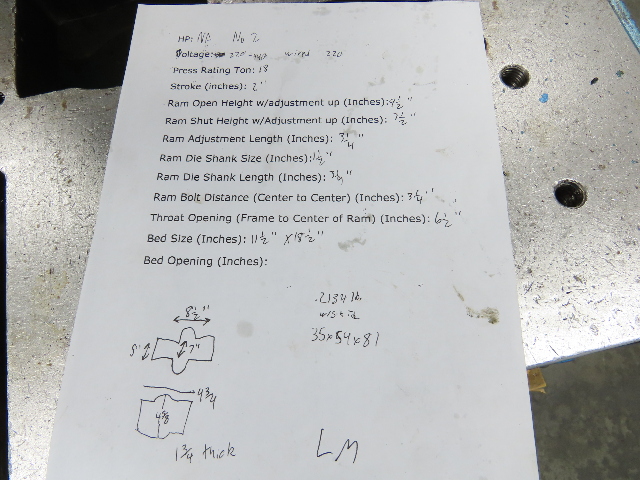 HP: NA No 2
Voltage: 220-440 wired 220
Press Rating Ton: 18
Stroke (inches): 2"
Ram Open Height w/adjustment up (Inches): 9½"
Ram Shut Height w/Adjustment up (Inches): 7½"
Ram Adjustment Length (Inches): 3¼"
Ram Die Shank Size (Inches): 1½"
Ram Die Shank Length (Inches):
Ram Bolt Distance (Center to Center) (Inches): 3¼"
Throat Opening (Frame to Center of Ram) (Inches): 6½"
Bed Size (Inches): 11½" X 18½"
Bed Opening (Inches):
8½"
2134 lb.
35x54x81
7"
4¾
4⅜
1¾ thick
LM